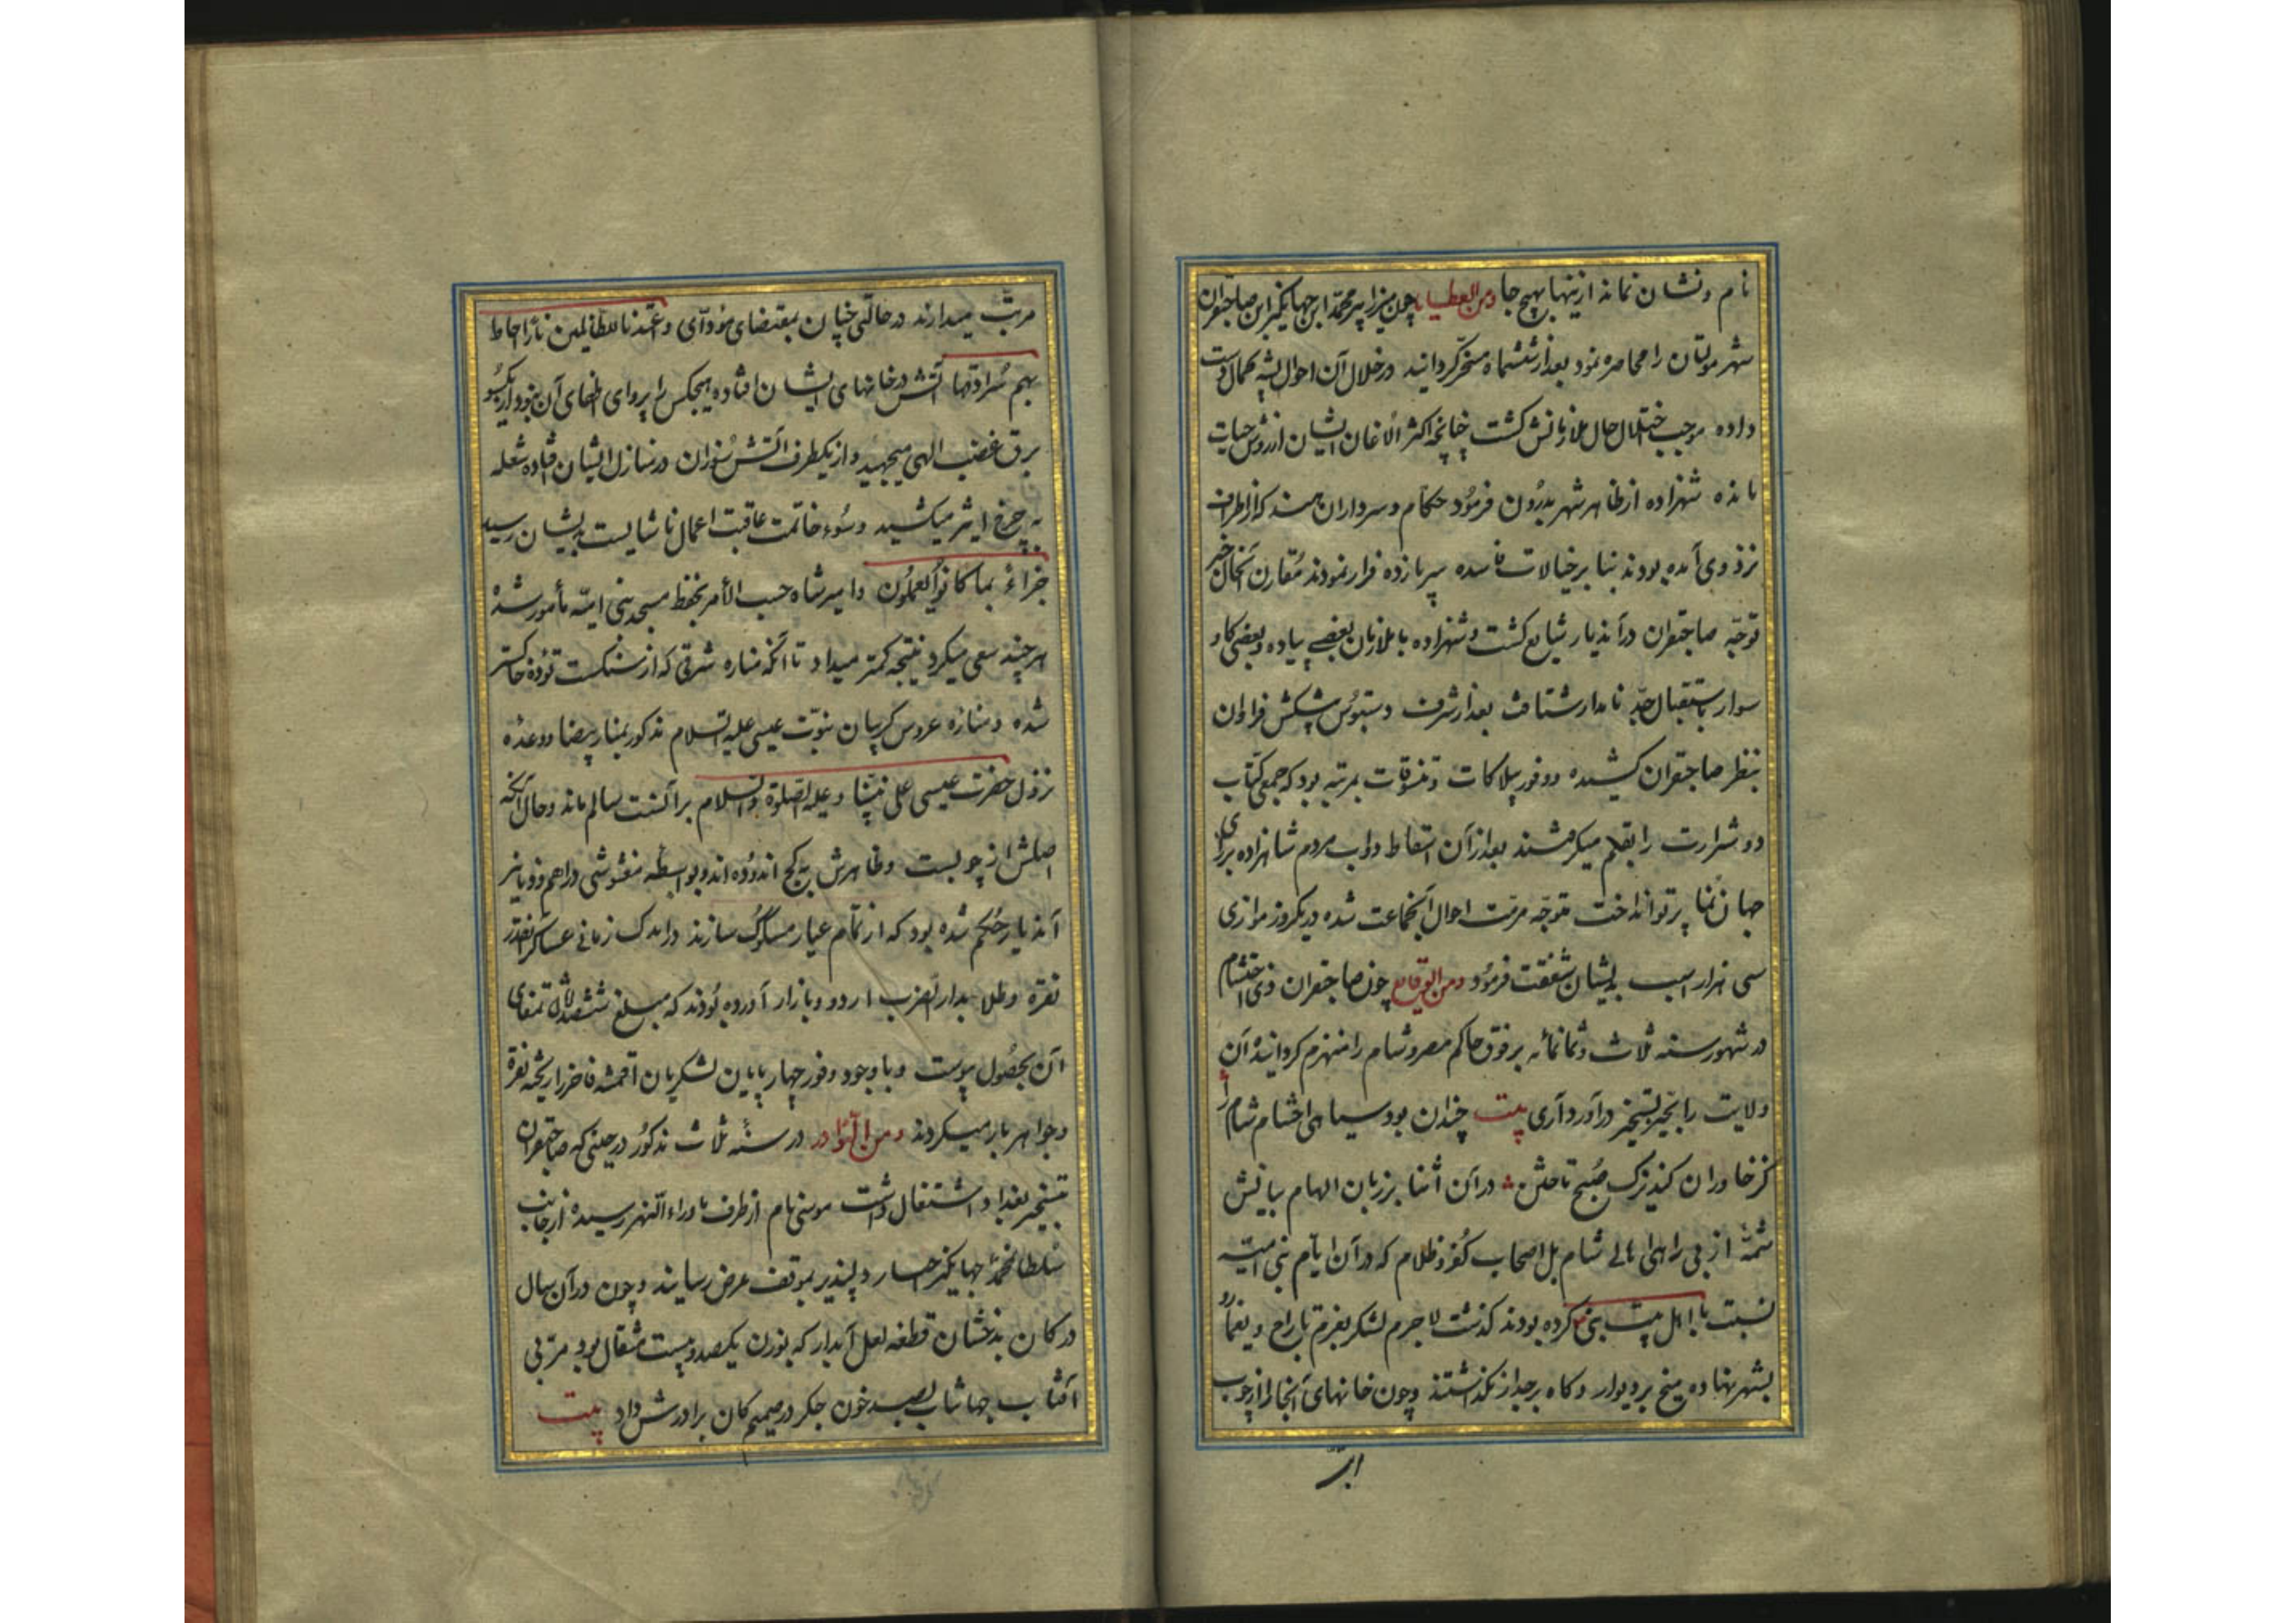 نام و نشان نماند ازینها بهیچ جا ومن العطیات چون میرزا پیر محمد ابن جهانگیر ابن صاحبقران
شهر مولتان را محاصره نمود بعد از ششماه مسخر کردانید در خلال آن احوال
داده موجب اختلال حال ملازمانش کشت چنانچه اکثر الاغان ایشان از روش حیات
مانده شهزاده از ظاهر شهر بدرون فرمود حکام و سرداران هند که از اطراف
نزد وی آمده بودند بنا بر خیالات فاسده سپر بازده فرار نمودند مقارن آنحال خبر
توجه صاحبقران در آندیار شایع کشت و شهزاده با ملازمان بعضی پیاده و بعضی کاو
سوار باستقبال جد نامدار شتافت بعد از شرف دستبوس پیشکش فراوان
بنظر صاحبقران کشیده و وفور بیلاکات و تنسوقات بمرتبه بود که جمعی کتاب
دو شرارت را بقلم میکرفتند بعد از آن اسقاط دواب مردم شاهزاده برای
جهان نما پرتو انداخت متوجه مرمت احوال آنجماعت شده در یکروز موازی
سی هزار اسب بدیشان شفقت فرمود ومن الوقایع چون صاحبقران ذی احتشام
در شهور سنه ثلاث و ثمانمائه بر فوق حاکم مصر و شام را منهزم کردانیده آن
ولایت را بتسخیر درآورد آری بیت چندان بود سیاهی احشام شام را
کز خاوران کند ترک صبح تاختن در آن اثنا بر زبان الهام بیانش
شمهٔ از بی راهی اهالی شام بل اصحاب کفر و ظلام که در آن ایام بنی امیه
نسبت با اهل بیت نبی کرده بودند کذشت لاجرم لشکر بعزم تاراج و یغما رو
بشهر نهاده میخ بر دیوار و کاه بر جدار نکذاشتند و چون خانهای آنجا را از چوب
مرتب میدارند در حالتی چنان بمقتضای مؤدای و اعتدنا للظالمین نارا احاط
بهم سرادقها آتش در خانهای ایشان افتاده هیچکس را پروای اطفای آن نبود از یکسو
برق غضب الهی میجهید و از یکطرف آتش سوزان در منازل ایشان فتاده شعله
به چرخ اثیر میکشید و سوء خاتمت عاقبت اعمال ناشایست بدیشان رسید
جزاء بما کانوا یعملون و امیر شاه حسب الأمر بحفظ مسجد بنی امیه مأمور شده
هر چند سعی میکرد نتیجه کمتر میداد تا آنکه مناره شرقی که از سنکست توده خاکستر
شده و مناره عروس کریبان نبوت عیسی علیه السلام مذکور بمنار بیضا و وعده
نزول حضرت عیسی علی نبینا و علیه الصلوة والسلام بر آنست سالم ماند و حال آنکه
اصلش از چوبست و ظاهرش به کچ اندوده اند و بواسطه مغشوشی دراهم و دنانیر
آندیار حکم شده بود که از تمام عیار مسکوک سازند و اندک زمانی عساکر آنقدر
نقره و طلا بدار الضرب اردو و بازار آورده بودند که مبلغ ششصد تمغای
آن بحصول پیوست و با وجود وفور چهار پایان لشکریان اقمشه فاخر را ریخته نقره
و جواهر بار میکردند ومن النوادر در سنه ثلاث مذکور در حینی که صاحبقران
بتسخیر بغداد اشتغال داشت موسی نام از طرف ماوراء النهر رسیده از جانب
سلطان محمد جهانگیر اخبار دلپذیر بموقف عرض رسانید و چون در آن سال
در کان بدخشان قطعه لعل آبدار که بوزن یکصد و بیست مثقال بود مربی
آفتاب جهانتاب بصد خون جکر در صمیم کان پرورش داد بیت